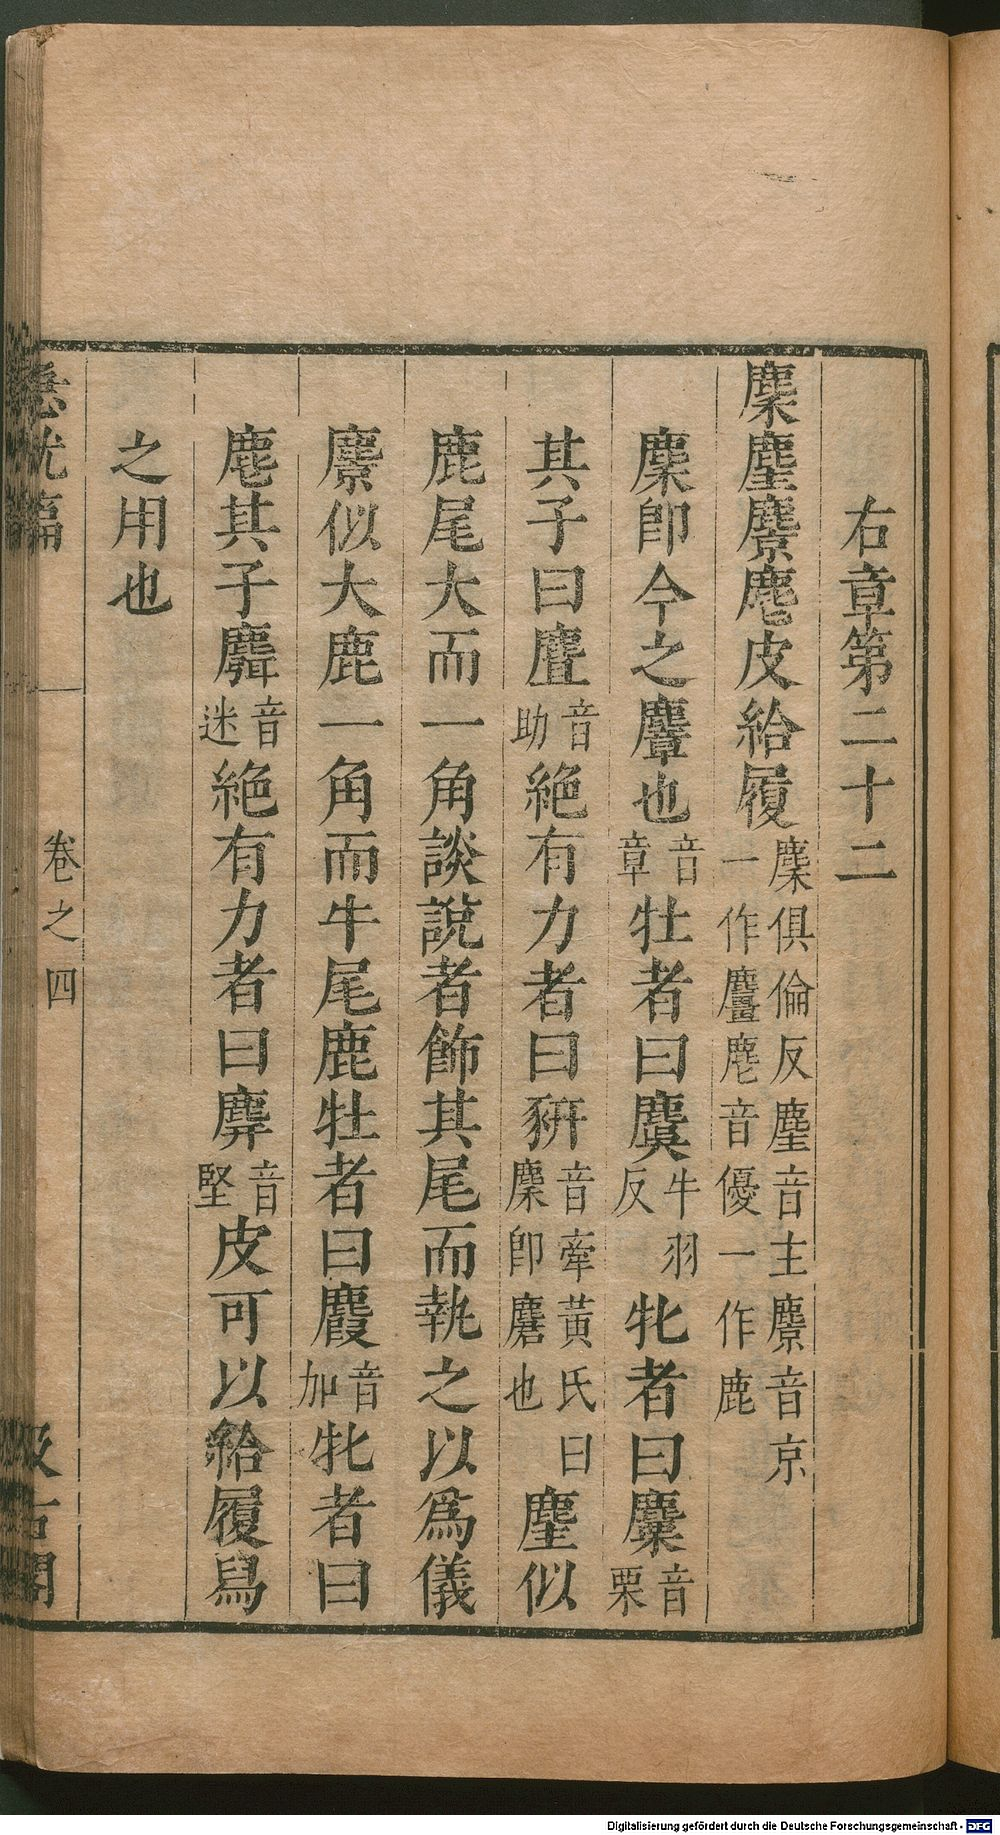 右章第二十二
麇麈麖麀皮給履麇俱倫反麈音主麖音京一作麠麀音優一作鹿
麇卽今之麞也音章牡者曰麌牛羽反牝者曰麜音栗
其子曰麆音助絶有力者曰豣音牽黃氏曰麇卽麏也麈似
鹿尾大而一角談說者飾其尾而執之以爲儀
麖似大鹿一角而牛尾鹿牡者曰麚音加牝者曰
麀其子麛音迷絶有力者曰麉音堅皮可以給履舄
之用也
急就篇
卷之四
汲古閣
Digitalisierung gefördert durch die Deutsche Forschungsgemeinschaft - DFG